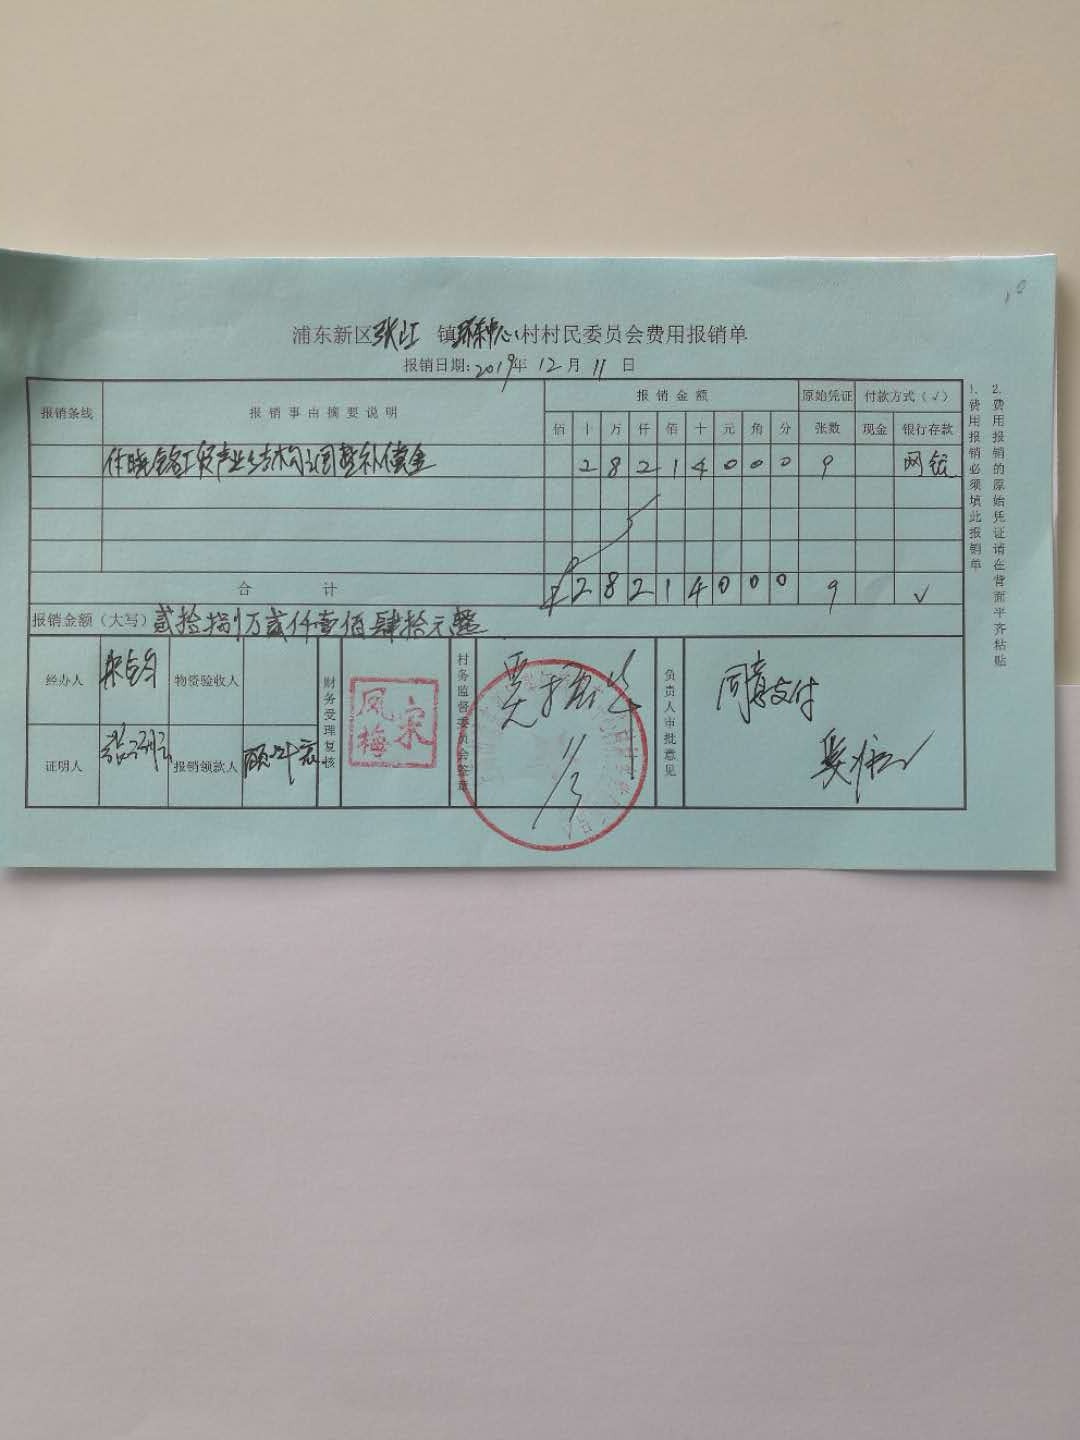 浦东新区张江 镇环东中心村村民委员会费用报销单
报销日期:2019年12月11日
报销条线 报销事由摘要说明 报销金额 原始凭证 付款方式(√)
佰 十 万 仟 佰 十 元 角 分 张数 现金 银行存款
产业结构调整补偿金 2 8 2 1 4 0 0 0 9 网银
合计 ¥ 2 8 2 1 4 0 0 0 9 √
报销金额(大写) 贰拾捌万贰仟壹佰肆拾元整
经办人 物资验收人
证明人 报销领款人
财务受理复核
凤梅 宋
村务监督委员会签章
负责人审批意见
同意支付
1.费用报销必须填此报销单
2.费用报销的原始凭证请在背面平齐粘贴